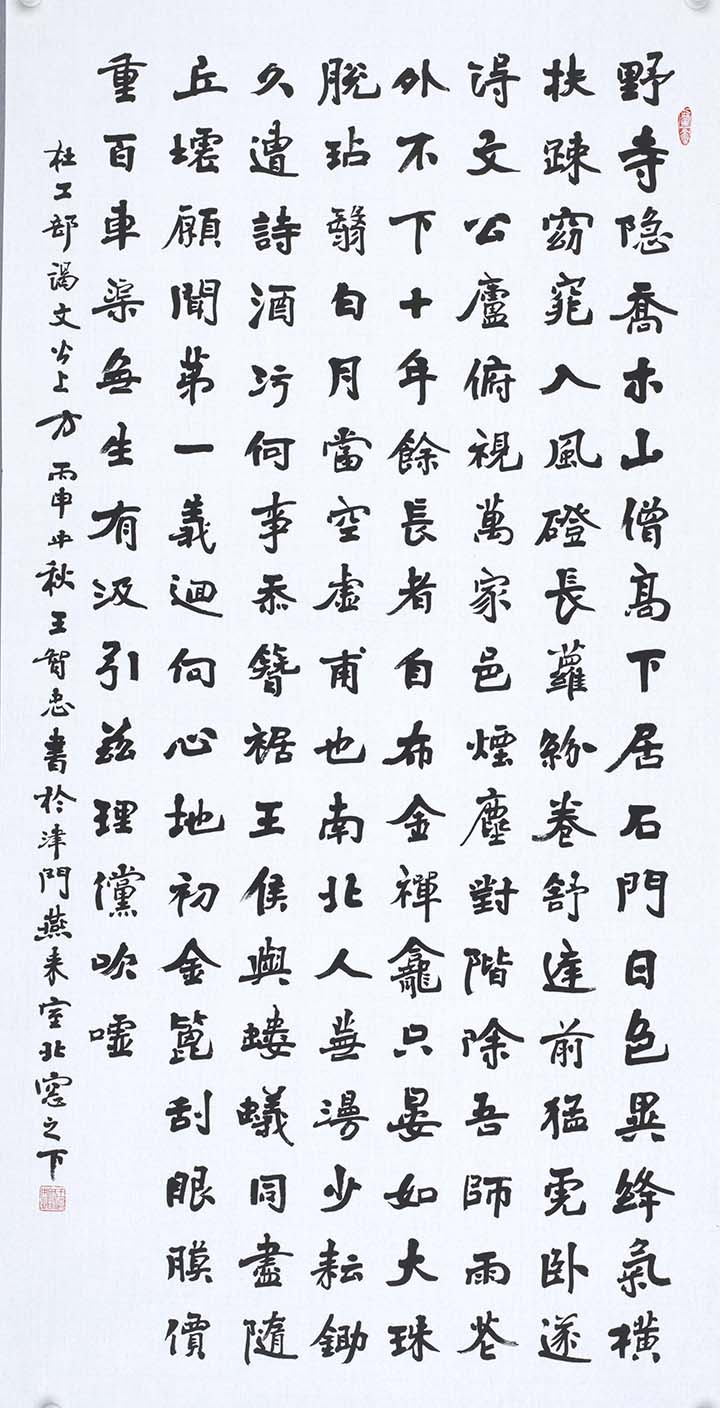 野寺隐喬木山僧高下居石門日色異絳氣橫
扶踈窈窕入風磴長蘿紛卷舒庵前猛虎卧遂
得文公廬俯視萬家邑煙塵對階除吾師雨花
外不下十年餘長者自布金禪龕只晏如大珠
脫玷翳白月當空虛甫也南北人蕪漫少耘鋤
久遭詩酒污何事忝簪裾王侯與螻蟻同盡隨
丘墟願聞第一義迴向心地初金篦刮眼膜價
重百車渠無生有汲引兹理儻吹噓
杜工部謁文公上方 丙申中秋王智忠書於津門燕来室北窗之下